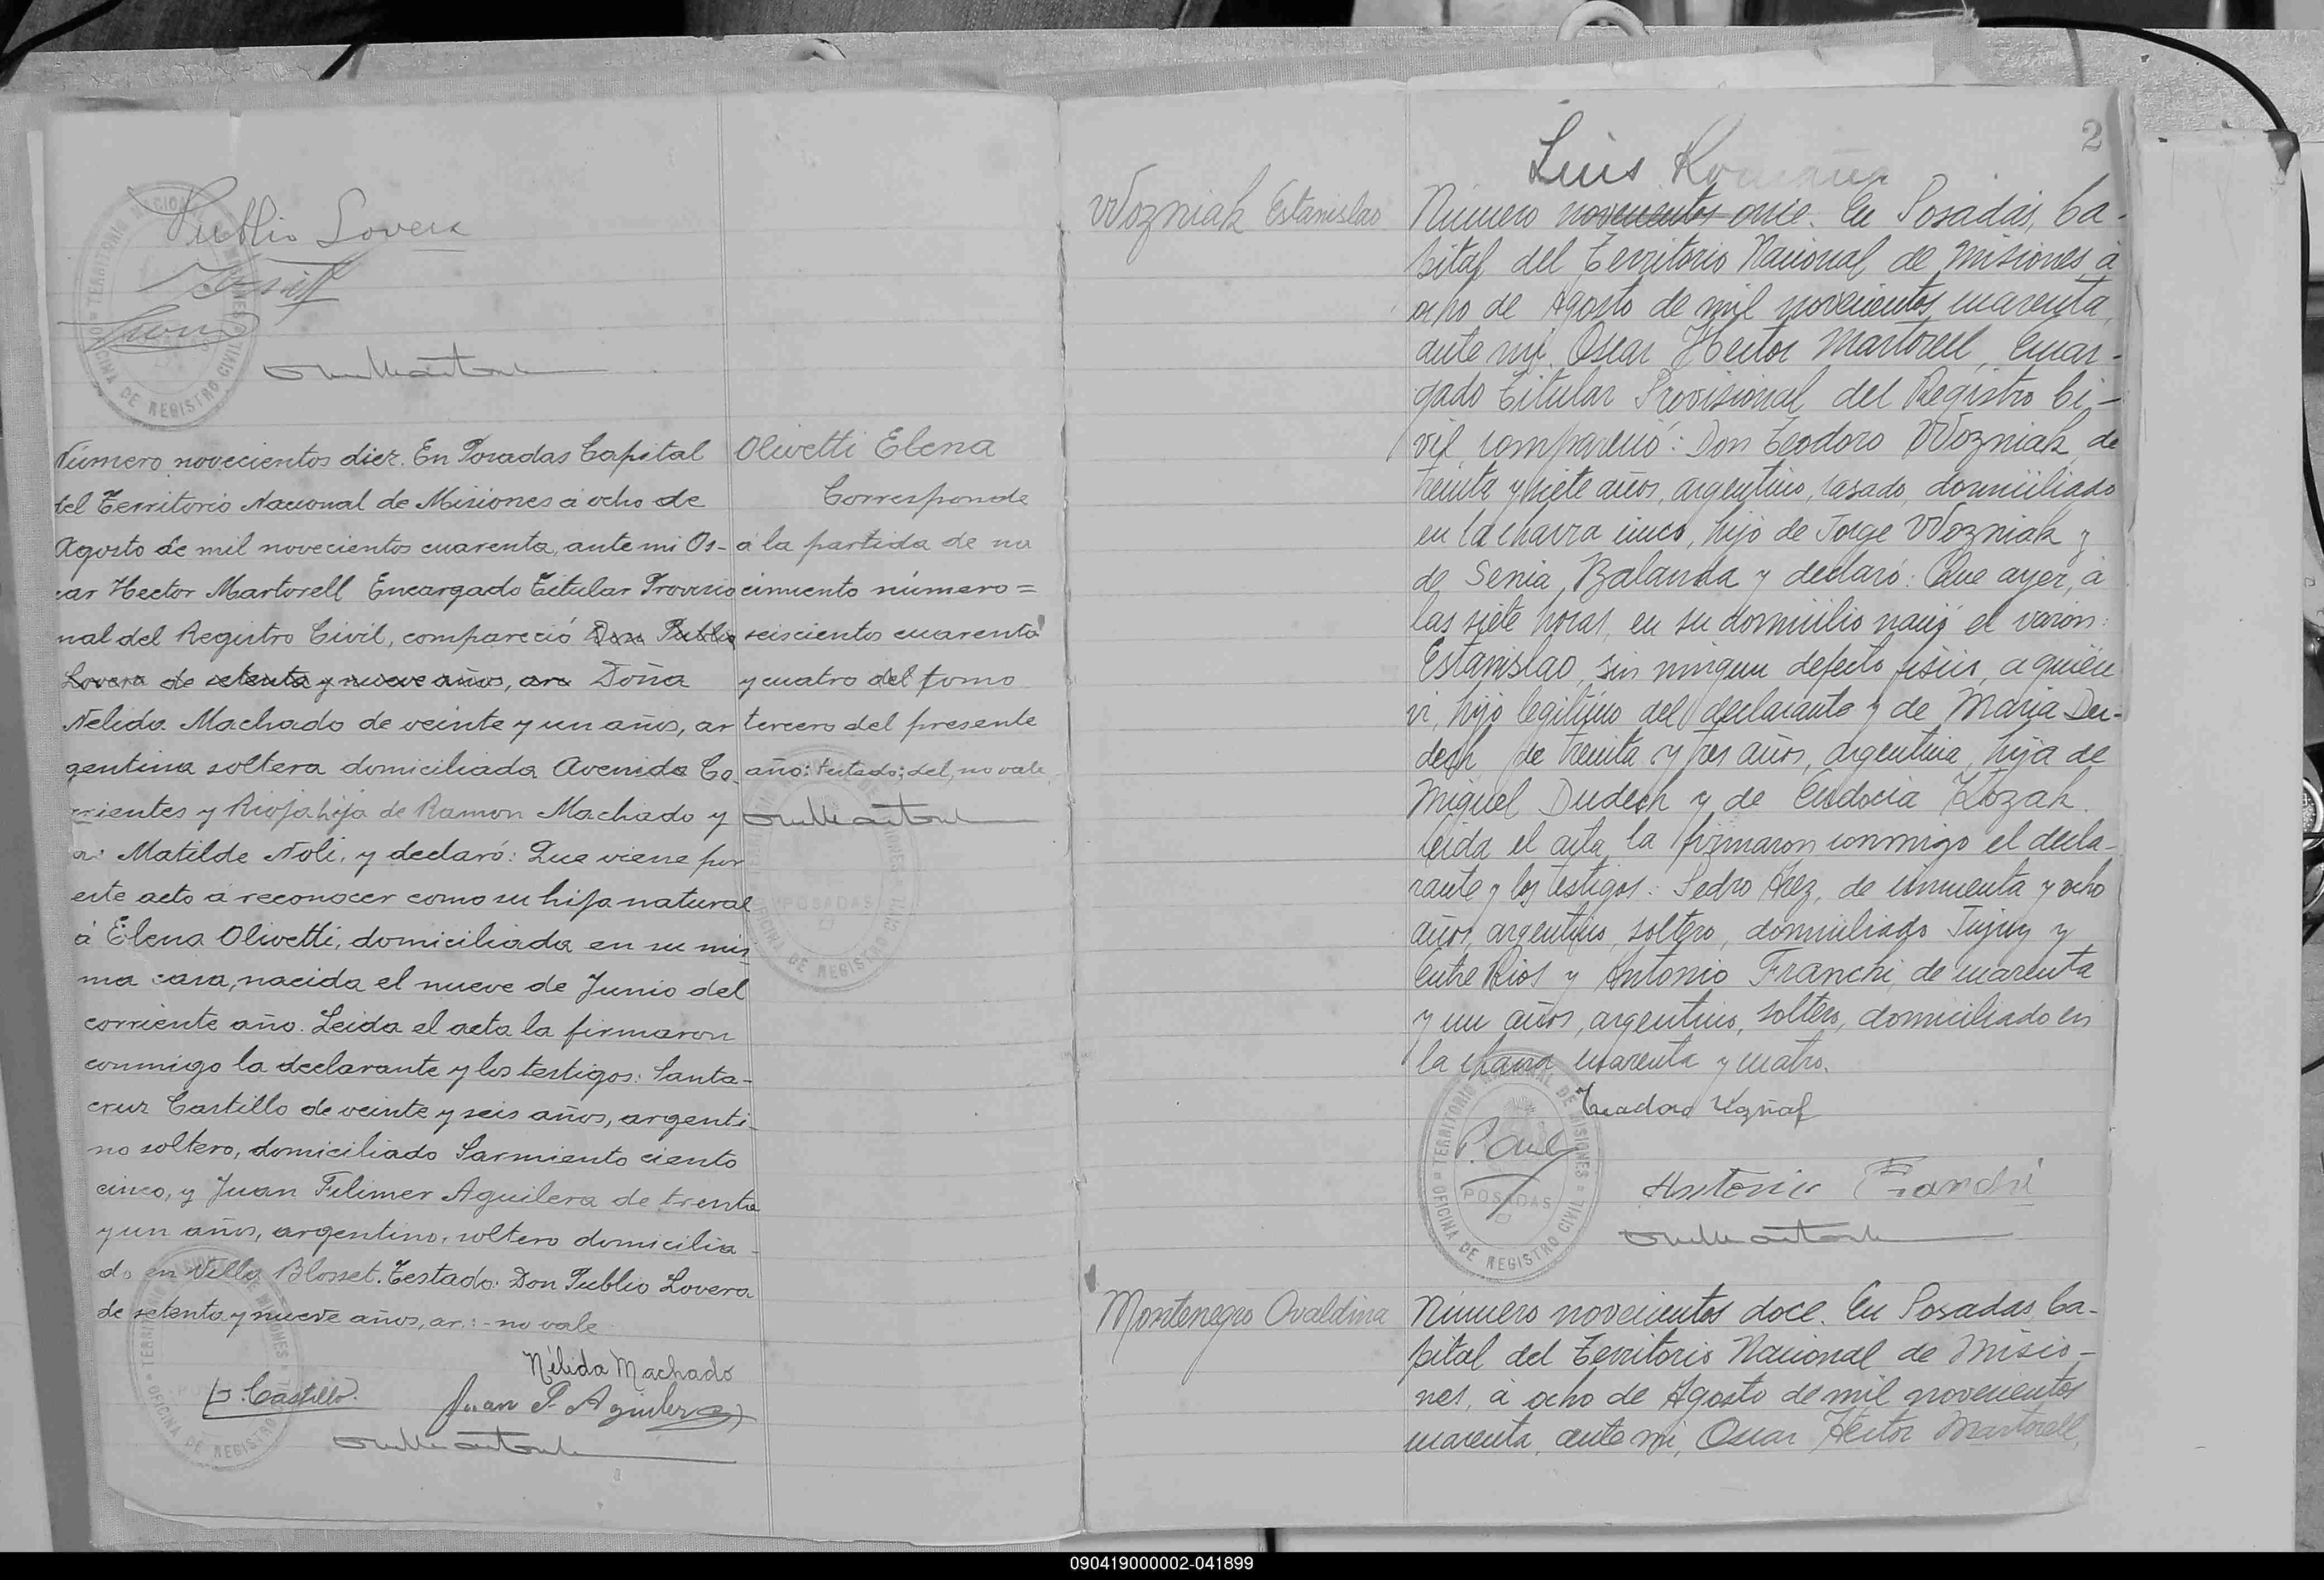 Publio Lovera
Número novecientos diez. En Posadas Capital
del Territorio Nacional de Misiones á ocho de
Agosto de mil novecientos cuarenta, ante mi Os-
car Hector Martorell Encargado Titular Provisio
nal del Registro Civil, compareció Don Publio
Lovera de setenta y nueve años, ar Doña
Nelida Machado de veinte y un años, ar
gentina soltera domiciliada Avenida Co
rrientes y Rioja hija de Ramon Machado y
Matilde Noli, y declaró: Que viene por
este acto á reconocer como su hija natural
á Elena Olivetti, domiciliada en su mis
ma casa, nacida el nueve de Junio del
corriente año. Leida el acta la firmaron
conmigo la declarante y los testigos: Santa-
cruz Castillo de veinte y seis años, argenti-
no soltero, domiciliado Sarmiento ciento
cinco, y Juan Filimer Aguilera de trenta
y un años, argentino, soltero domicilia-
do en Villa Blosset. Testado: Don Publio Lovera
de setenta y nueve años, ar.:- no vale
Nélida Machado
Castillo.
Juan F. Aguilera
Olivetti Elena
Corresponde
á la partida de na
cimiento número=
seiscientos cuarenta
y cuatro del tomo
tercero del presente
año: testado: del, no vale
TERRITORIO NACIONAL DE MISIONES
OFICINA DE REGISTRO CIVIL
POSADAS
2
Luis
Wozniak Estanislao
Número novecientos once. En Posadas, Ca-
pital del Territorio Nacional de Misiones á
ocho de Agosto de mil novecientos cuarenta,
ante mi Oscar Hector Martorell, Encar-
gado Titular Provisional del Registro Ci-
vil, compareció: Don Teodoro Wozniak, de
treinta y siete años, argentino, casado, domiciliado
en la chacra cinco, hijo de Jorge Wozniak y
de Senia Balanda y declaró: Que ayer, á
las siete horas, en su domicilio nació el varon:
Estanislao, sin ningun defecto fisico, a quien
vi, hijo legitimo del declarante y de Maria Du-
dech de treinta y tres años, argentina, hija de
Miguel Dudech y de Eudocia Kozak.
Leida el acta la firmaron conmigo el decla-
rante y los testigos: Pedro Aez, de cincuenta y ocho
años, argentino, soltero, domiciliado Jujuy y
Entre Rios y Antonio Franchi, de cuarenta
y un años, argentino, soltero, domiciliado en
la chacra cuarenta y cuatro.
Antonio Franchi
TERRITORIO NACIONAL DE MISIONES
OFICINA DE REGISTRO CIVIL
POSADAS
Montenegro Ovaldina
Número novecientos doce. En Posadas, Ca-
pital del Territorio Nacional de Misio-
nes, á ocho de Agosto de mil novecientos
cuarenta, ante mi, Oscar Hector Martorell,
090419000002-041899